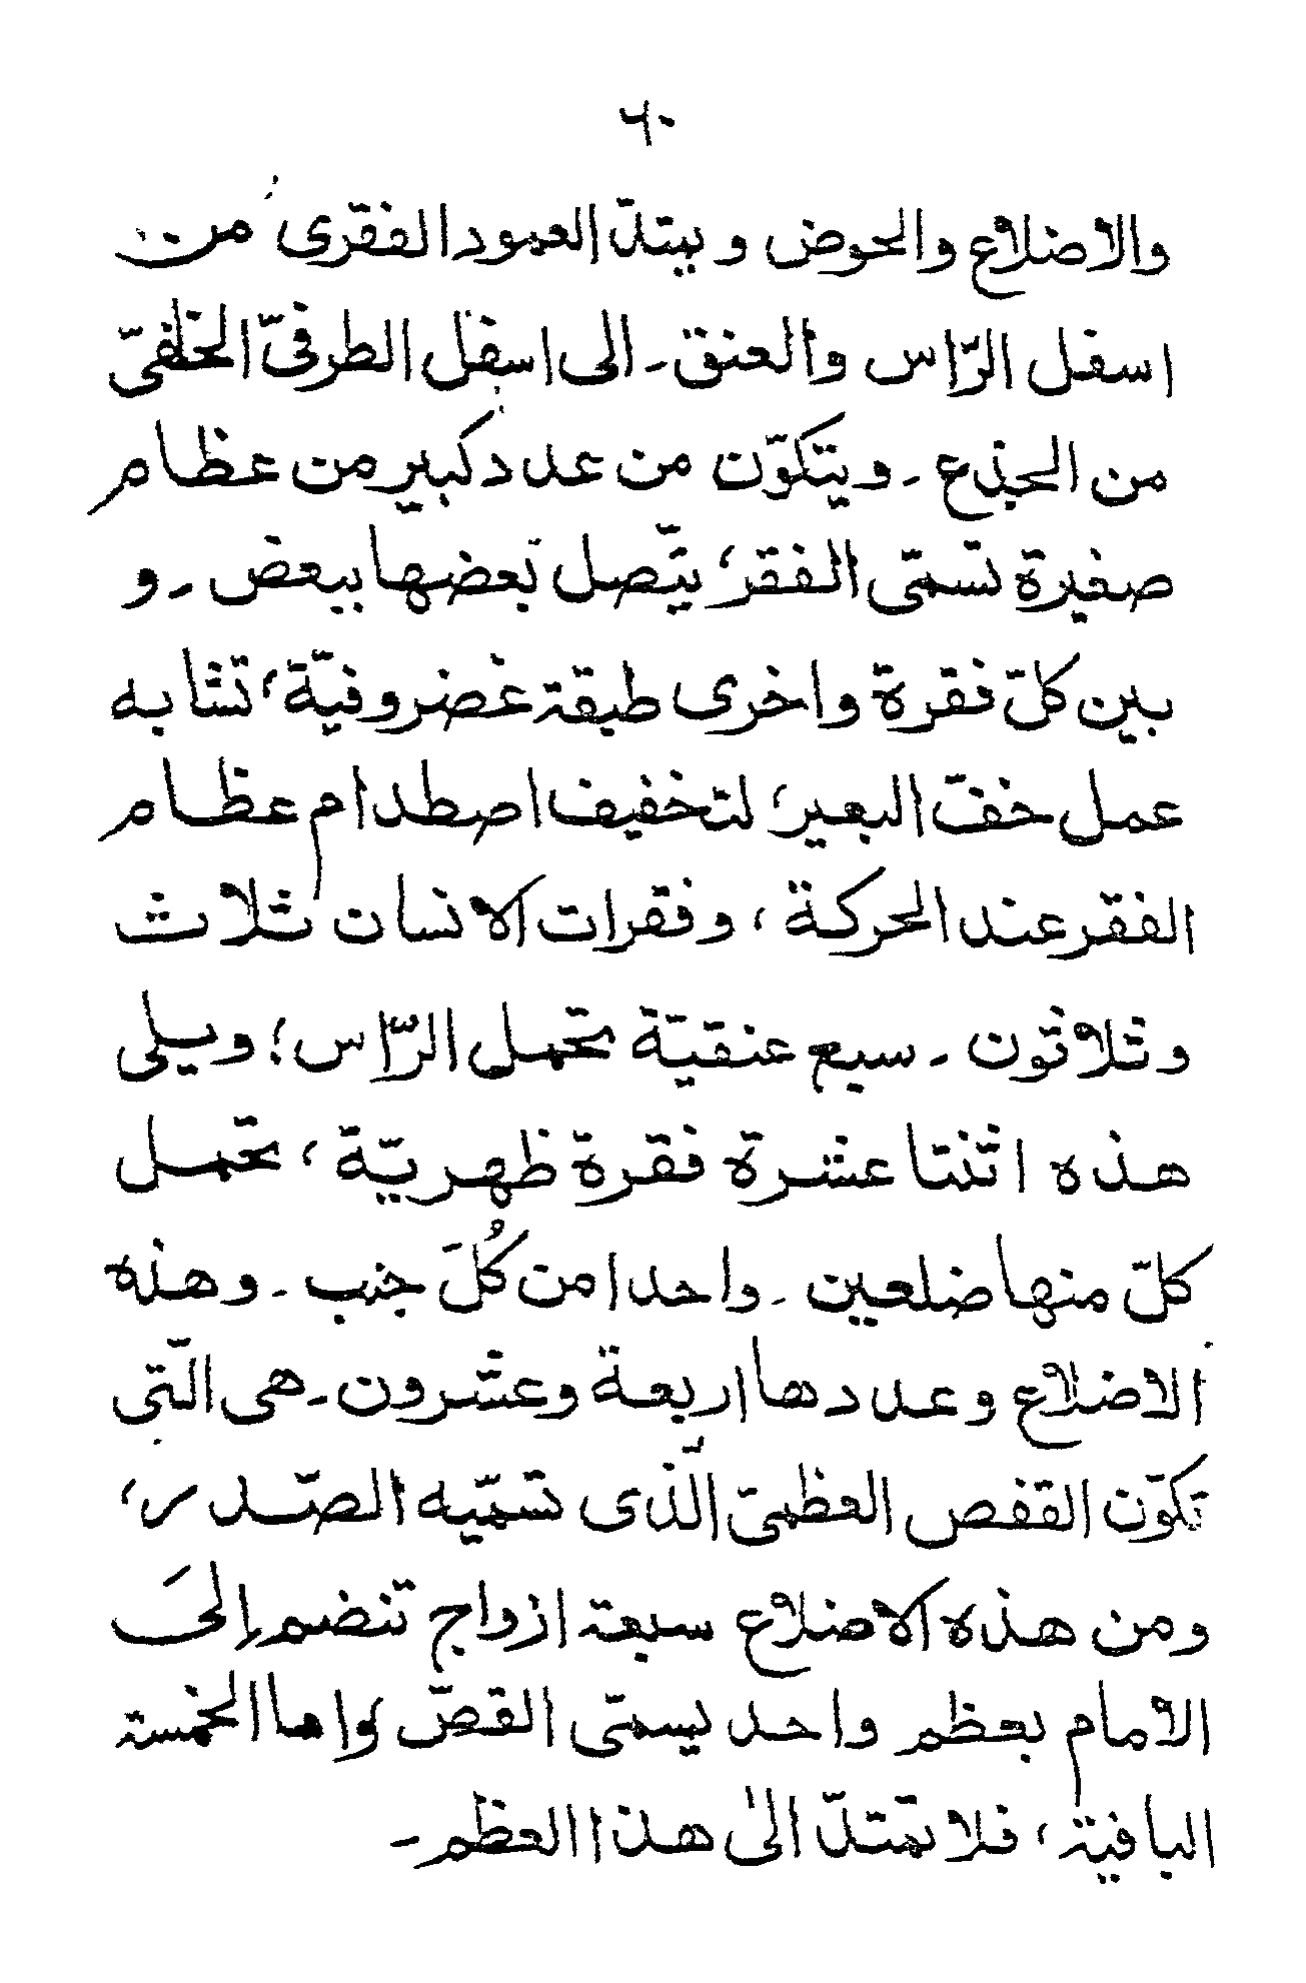 ٦٠
والاضلاع والحوض و يبتدّ العمود الفقرى من
اسفل الرّاس والعنق ـ الى اسفل الطرفىّ الخلفىّ
من الجذع ـ ويتكوّن من عدد كبير من عظام
صغيرة تسمّى الفقر، يتّصل بعضها ببعض ـ و
بين كلّ فقرة واخرى طبقة غضروفيّة، تشابه
عمل خفّ البعير، لتخفيف اصطدام عظام
الفقر عند الحركة، و فقرات الانسان ثلاث
وثلاثون ـ سبع عنقيّة تحمل الرّاس؛ ويلى
هذه اثنتا عشرة فقرة ظهريّة، تحمل
كلّ منها ضلعين ـ واحدا من كُلَ جنب ـ وهذه
الاضلاع وعددها اربعة وعشرون ـ هى الّتى
تكوّن القفص العظمىّ الّذى تسمّيه الصّدر،
ومن هذه الاضلاع سبعة ازواج تنضم إلىَ
الامام بعظم واحد يسمّى القصّ واما الخمسة
الباقية، فلا تمتدّ الى هذا العظم ـ